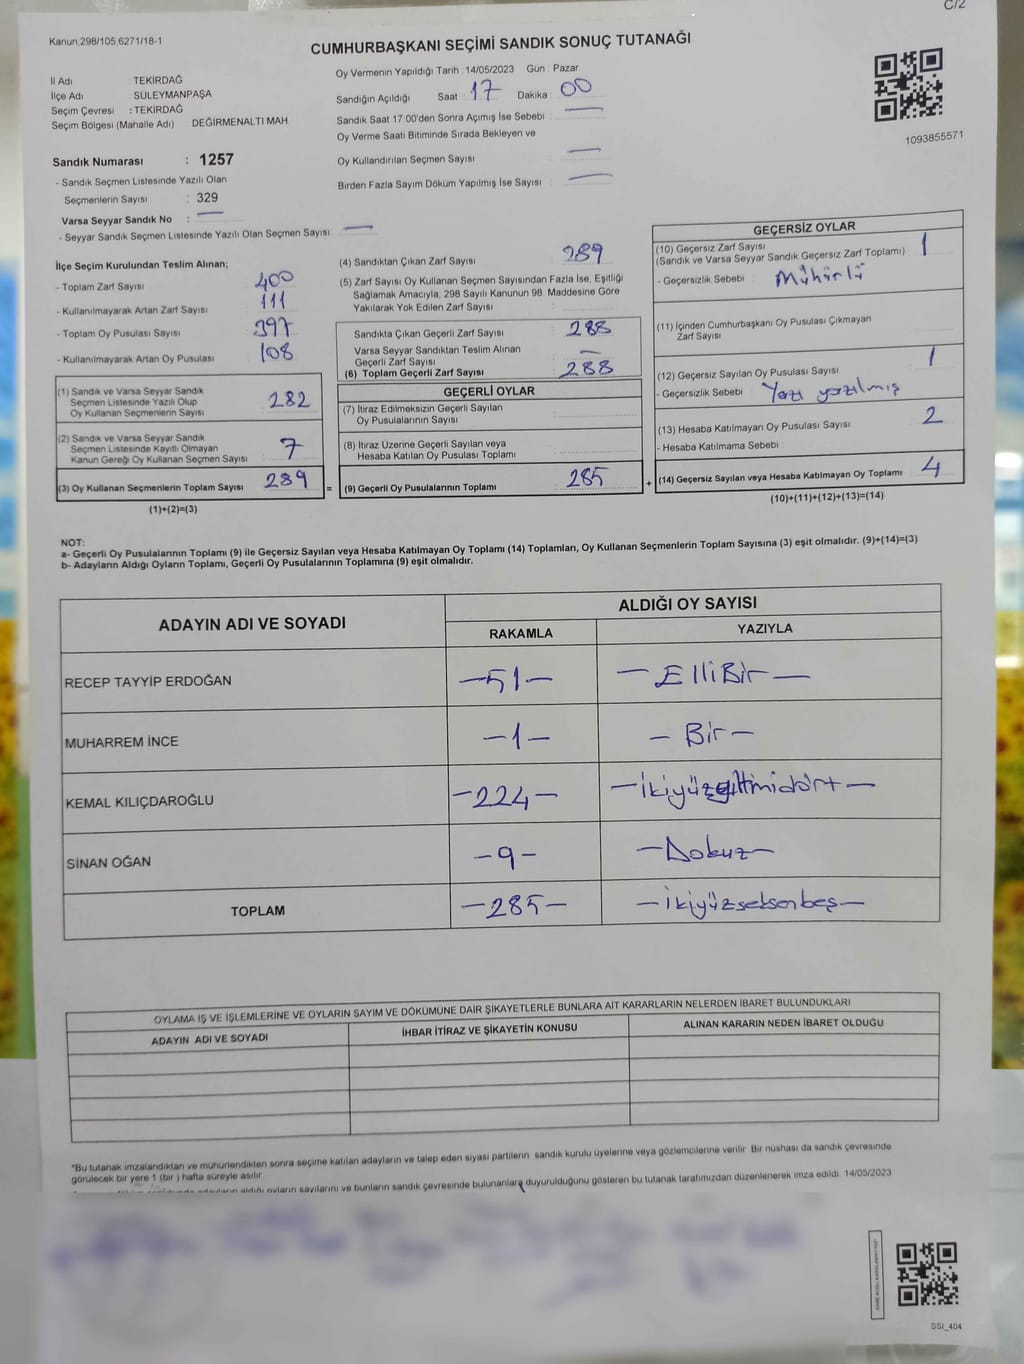 C/2
Kanun,298/105,6271/18-1
CUMHURBAŞKANI SEÇİMİ SANDIK SONUÇ TUTANAĞI
İl Adı : TEKİRDAĞ
İlçe Adı : SÜLEYMANPAŞA
Seçim Çevresi : TEKİRDAĞ
Seçim Bölgesi (Mahalle Adı) DEĞİRMENALTI MAH.
Sandık Numarası : 1257
- Sandık Seçmen Listesinde Yazılı Olan
Seçmenlerin Sayısı : 329
Varsa Seyyar Sandık No : —
- Seyyar Sandık Seçmen Listesinde Yazılı Olan Seçmen Sayısı: —
Oy Vermenin Yapıldığı Tarih : 14/05/2023 Gün : Pazar
Sandığın Açıldığı Saat : 17 Dakika : 00
Sandık Saat 17:00'den Sonra Açımış İse Sebebi : —
Oy Verme Saati Bitiminde Sırada Bekleyen ve
Oy Kullandırılan Seçmen Sayısı : —
Birden Fazla Sayım Döküm Yapılmış İse Sayısı : —
1093855571
İlçe Seçim Kurulundan Teslim Alınan;
- Toplam Zarf Sayısı : 400
- Kullanılmayarak Artan Zarf Sayısı : 111
- Toplam Oy Pusulası Sayısı : 397
- Kullanılmayarak Artan Oy Pusulası : 108
(1) Sandık ve Varsa Seyyar Sandık
Seçmen Listesinde Yazılı Olup
Oy Kullanan Seçmenlerin Sayısı 282
(2) Sandık ve Varsa Seyyar Sandık
Seçmen Listesinde Kayıtlı Olmayan
Kanun Gereği Oy Kullanan Seçmen Sayısı 7
(3) Oy Kullanan Seçmenlerin Toplam Sayısı 289
(1)+(2)=(3)
(4) Sandıktan Çıkan Zarf Sayısı : 289
(5) Zarf Sayısı Oy Kullanan Seçmen Sayısından Fazla İse, Eşitliği
Sağlamak Amacıyla, 298 Sayılı Kanunun 98. Maddesine Göre
Yakılarak Yok Edilen Zarf Sayısı :
Sandıkta Çıkan Geçerli Zarf Sayısı : 288
Varsa Seyyar Sandıktan Teslim Alınan
Geçerli Zarf Sayısı : —
(6) Toplam Geçerli Zarf Sayısı : 288
GEÇERLİ OYLAR
(7) İtiraz Edilmeksizin Geçerli Sayılan
Oy Pusulalarının Sayısı :
(8) İtiraz Üzerine Geçerli Sayılan veya
Hesaba Katılan Oy Pusulası Toplamı :
= (9) Geçerli Oy Pusulalarının Toplamı : 285
GEÇERSİZ OYLAR
(10) Geçersiz Zarf Sayısı
(Sandık ve Varsa Seyyar Sandık Geçersiz Zarf Toplamı) : 1
- Geçersizlik Sebebi : Mühürlü
(11) İçinden Cumhurbaşkanı Oy Pusulası Çıkmayan
Zarf Sayısı :
(12) Geçersiz Sayılan Oy Pusulası Sayısı : 1
- Geçersizlik Sebebi : Yazı yazılmış
(13) Hesaba Katılmayan Oy Pusulası Sayısı : 2
- Hesaba Katılmama Sebebi :
+ (14) Geçersiz Sayılan veya Hesaba Katılmayan Oy Toplamı : 4
(10)+(11)+(12)+(13)=(14)
NOT:
a- Geçerli Oy Pusulalarının Toplamı (9) ile Geçersiz Sayılan veya Hesaba Katılmayan Oy Toplamı (14) Toplamları, Oy Kullanan Seçmenlerin Toplam Sayısına (3) eşit olmalıdır. (9)+(14)=(3)
b- Adayların Aldığı Oyların Toplamı, Geçerli Oy Pusulalarının Toplamına (9) eşit olmalıdır.
ADAYIN ADI VE SOYADI ALDIĞI OY SAYISI
RAKAMLA YAZIYLA
RECEP TAYYİP ERDOĞAN —51— —ElliBir—
MUHARREM İNCE —1— —Bir—
KEMAL KILIÇDAROĞLU —224— —İkiyüzyirmidört—
SİNAN OĞAN —9— —Dokuz—
TOPLAM —285— —ikiyüzseksenbeş—
OYLAMA İŞ VE İŞLEMLERİNE VE OYLARIN SAYIM VE DÖKÜMÜNE DAİR ŞİKAYETLERLE BUNLARA AİT KARARLARIN NELERDEN İBARET BULUNDUKLARI
ADAYIN ADI VE SOYADI İHBAR İTİRAZ VE ŞİKAYETİN KONUSU ALINAN KARARIN NEDEN İBARET OLDUĞU
*Bu tutanak imzalandıktan ve mühürlendikten sonra seçime katılan adayların ve talep eden siyasi partilerin sandık kurulu üyelerine veya gözlemcilerine verilir. Bir nüshası da sandık çevresinde
görülecek bir yere 1 (bir ) hafta süreyle asılır.
adayların aldığı oyların sayılarını ve bunların sandık çevresinde bulunanlara duyurulduğunu gösteren bu tutanak tarafımızdan düzenlenerek imza edildi. 14/05/2023
SSI_404